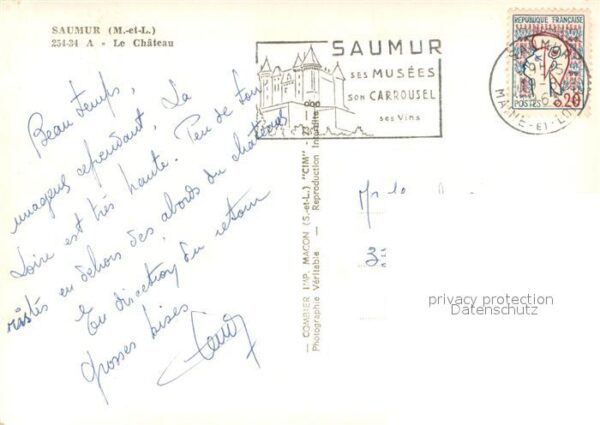 SAUMUR (M.-et-L.)
254-34 A - Le Château
Beau temps,
nuageux cependant. La
Loire est très haute. Peu de tou-
ristes en dehors des abords du château
En direction du retour
grosses bises
SAUMUR
SES MUSÉES
SON CARROUSEL
ses Vins
REPUBLIQUE FRANÇAISE
POSTES
0,20
SAUMUR
MAINE-ET-LOIRE
— COMBIER IMP. MACON (S.-et-L.) "CIM" -
Photographie Véritable — Reproduction Interdite
Mr
privacy protection
Datenschutz